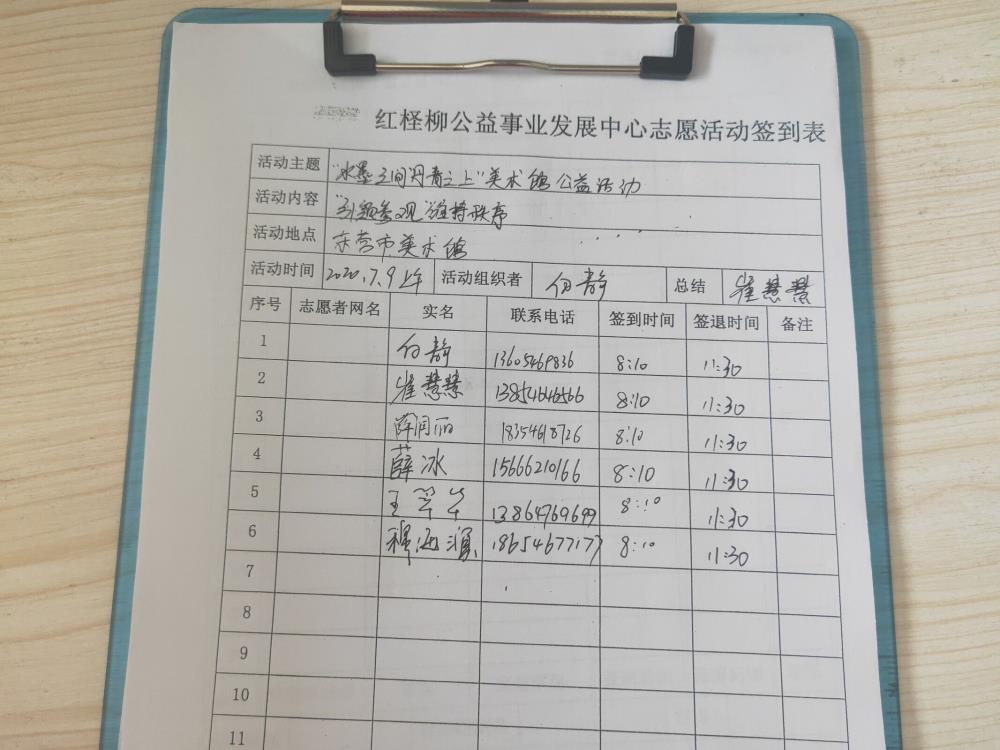 红柽柳公益事业发展中心志愿活动签到表
活动主题 "水墨之间丹青之上"美术馆公益活动
活动内容 引题参观 维持秩序
活动地点 东营市美术馆
活动时间 2020.7.9上午 活动组织者 白静 总结 崔慧慧
序号 志愿者网名 实名 联系电话 签到时间 签退时间 备注
1 白静 13605469836 8:10 11:30
2 崔慧慧 13854646566 8:10 11:30
3 薛闫丽 18354618726 8:10 11:30
4 薛冰 15666210166 8:10 11:30
5 王翠华 13864769699 8:10 11:30
6 穆海滨 18654677177 8:10 11:30
7
8
9
10
11